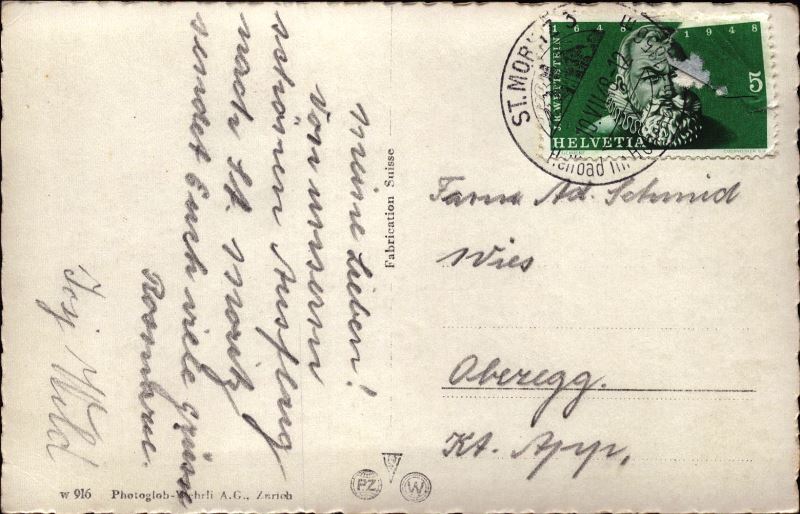 Meine Lieben!
Von unserm
schönen Ausflug
nach St. Moritz
sendet Euch viele Grüsse
Rosmarie.
Wild
Fabrication Suisse
1648 1948
J.R.WETTSTEIN
5
HELVETIA
ST. MORITZ 3
Heilbad im
Fam. Ad. Schmid
Wies
Oberegg.
Kt. App.
W 916 Photoglob-Wehrli A.G., Zürich
PZ
W